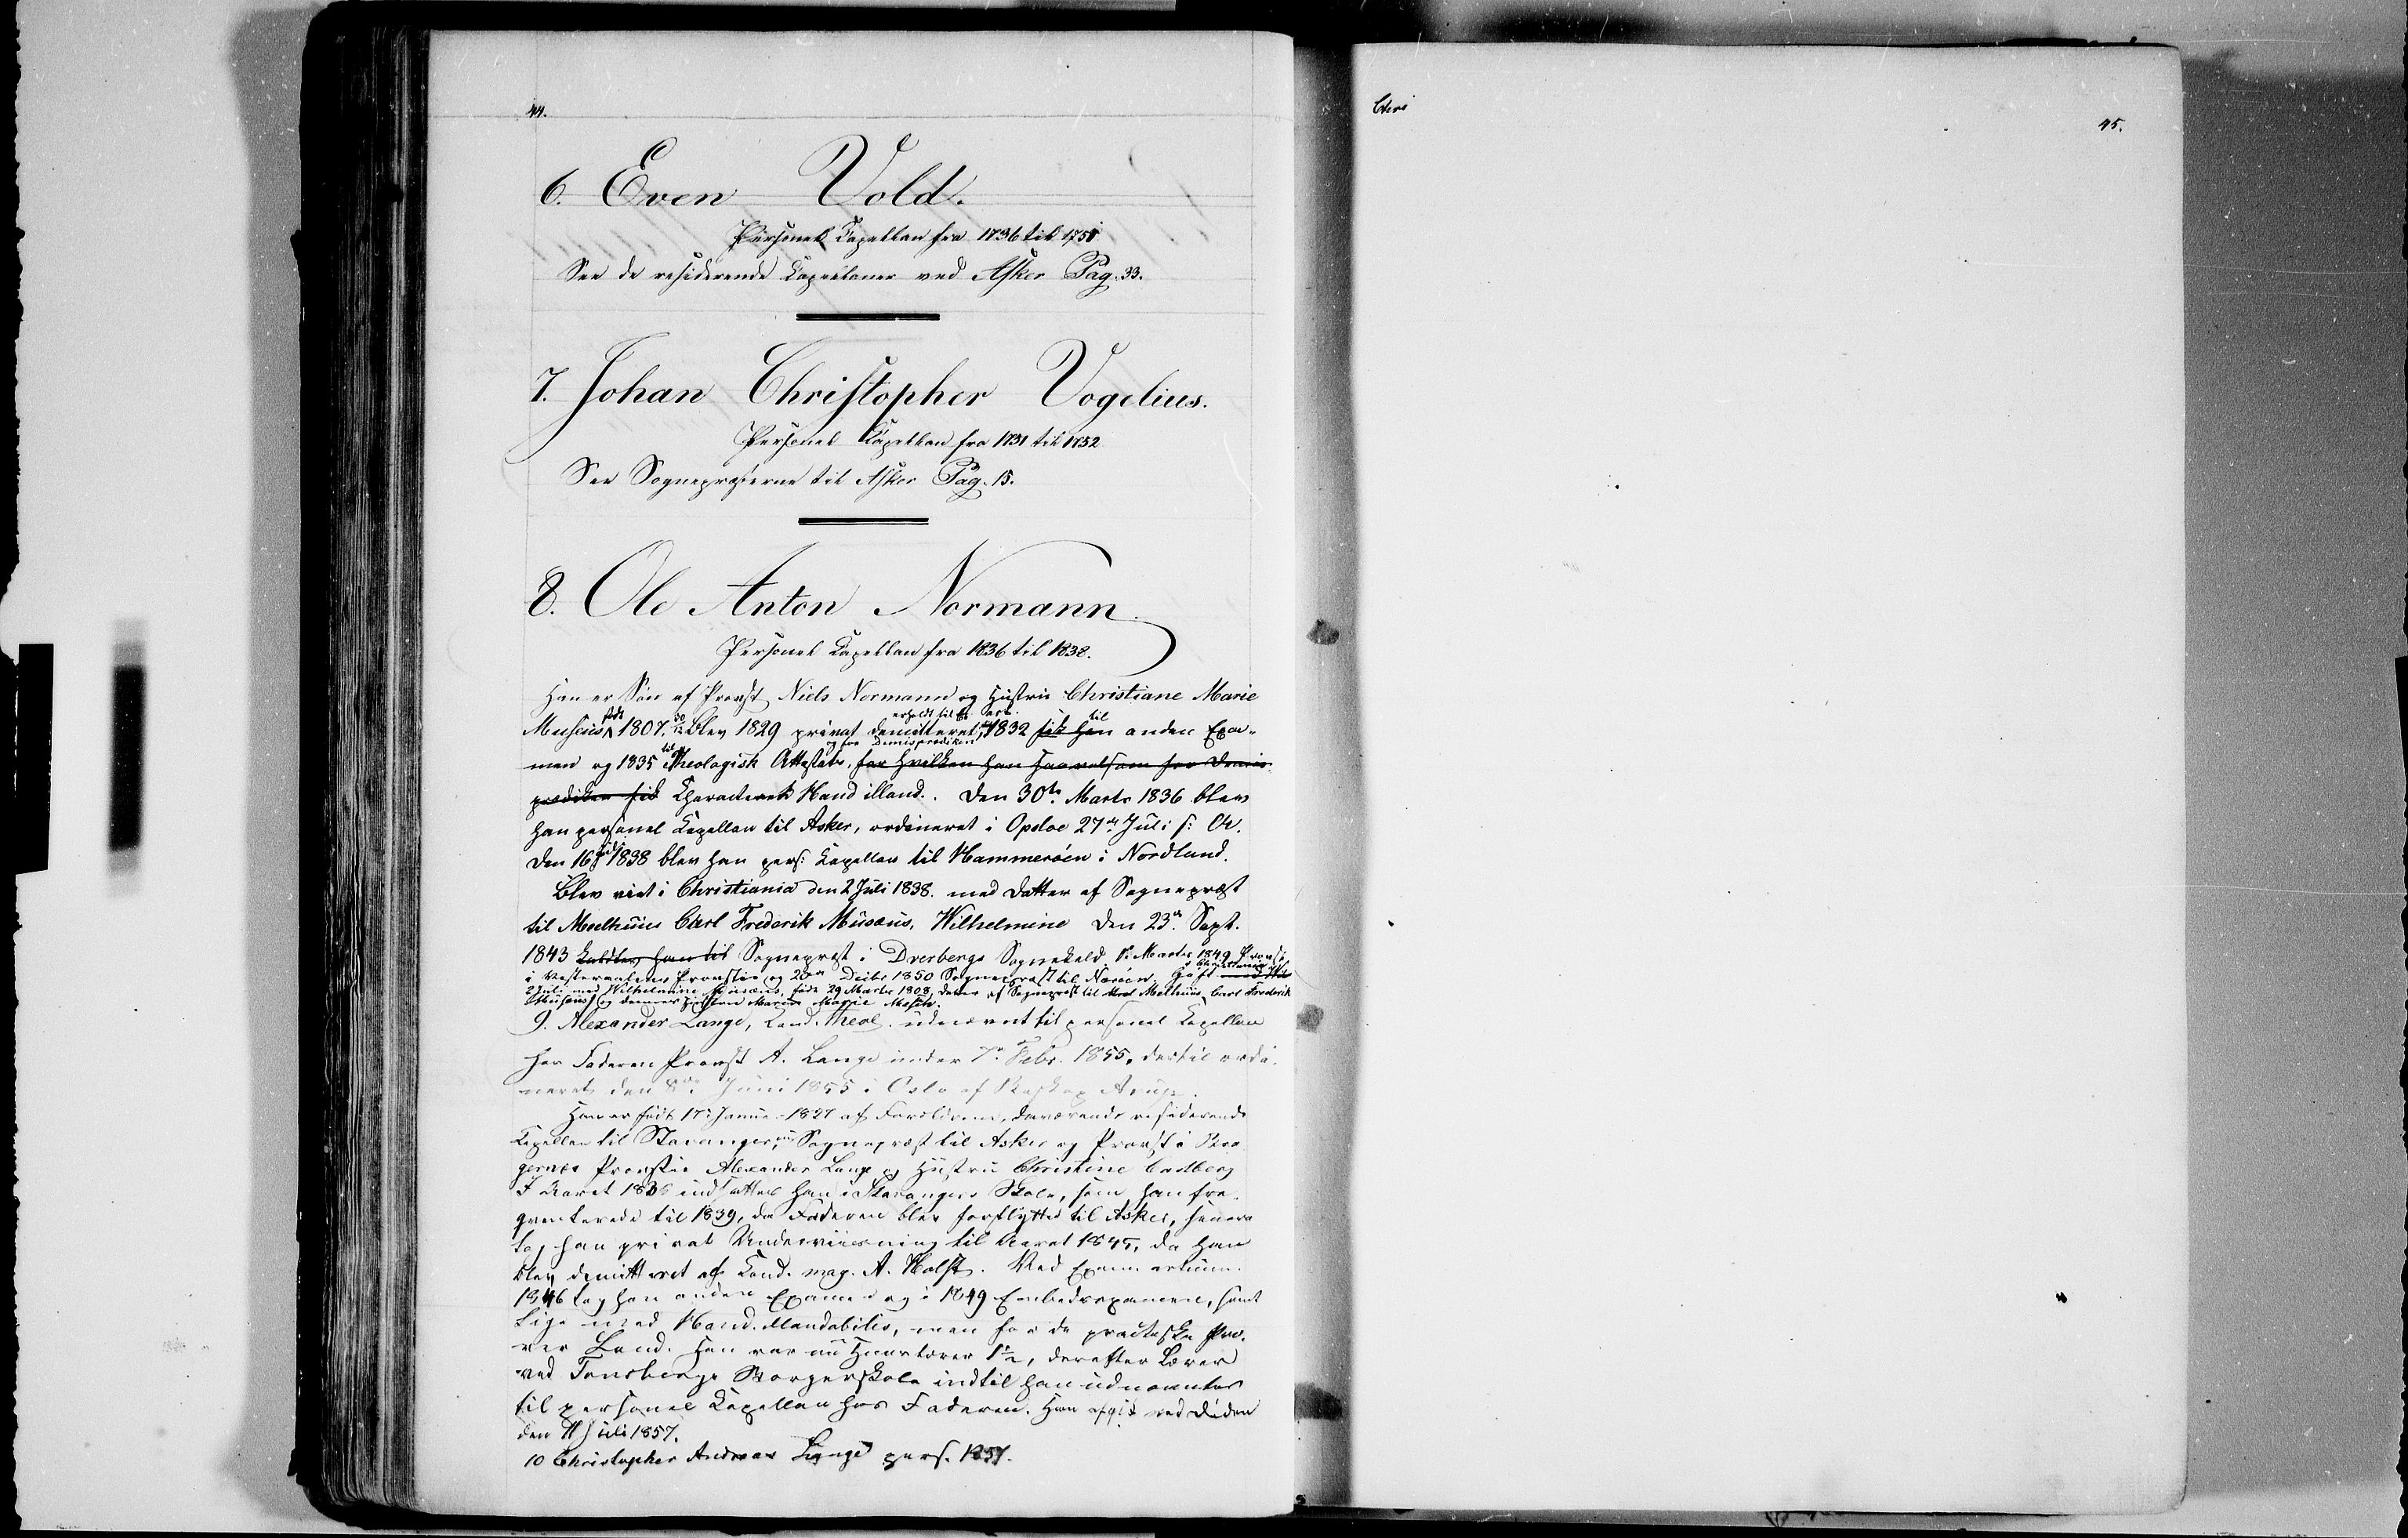 44.
6. Even Vold.
Personel Capellan fra 1736 til 1751
See de residerende Capellaner ved Asker Pag. 33.
7. Johan Christopher Vogelius.
Personel Capellan fra 1731 til 1752
See Sognepræsterne til Asker Pag. 15.
8. Ole Anton Normann.
Personel Capellan fra 1836 til 1838.
Han er Søn af Provst Niels Normann og Hustru Christiane Marie
Museus født 1807. 30/12 Blev 1829 privat demitteret, 1832 fik han til anden Exa-
og for Dimisprædiken
men og 1835 til Theologisk Attestats. for hvilken han saavelsom for Dimis-
prædiken fik Characteren Haud illaud. Den 30te Marts 1836 blev
han personel Capellan til Asker, ordineret i Opsloe 27de Juli s: A.
Den 16 1838 blev han pers: Capellan til Hammerøen i Nordland.
Blev viet i Christiania den 2 Juli 1838. med Datter af Sognepræst
til Meelhuus Carl Frederik Musæus, Wilhelmine Den 23de Sept.
1843 kaldtes han til Sognepræst i Dverbergs Sognekald. Marts 1849 Provst
i Vesteraalens Provstie og 20de Decbr 1850 Sognepræst til Nærøen. Gift
2 Juli med Wilhelmine Musæus, født 29 Marts 1808, Datter af Sognepræst til Melhuus Carl Frederik
Musæus og Hustru Maren Margie
9. Alexander Lange, Cand. theol. udnævnt til personel Capellan
hos Faderen Provst A. Lange under 7de Febr. 1855, dertil ordi-
neret den 8de Juni 1855 i Oslo af Biskop Arup.
Han er født 17: Januar 1827 af Forældrene, daværende residerende
Capellan til Stavanger, nu Sognepræst til Asker og Provst i Bra-
gernes Provstie Alexander Lange og Hustru Christine
I Aaret 1836 indsattes han i Stavangers Skole, som han fre-
qventerede til 1839, da Faderen blev forflyttet til Asker, senere
tog han privat Underviisning til Aaret 1845, da han
blev demitteret af Cand. mag. A. Holst. Ved Examen artium.
1846 tog han anden Examen og i 1849 Embedsexamen, samt
lige med Haud illaudabilis, men for de practiske Prø-
ver Laud. Han var nu Huuslærer 1½, derefter Lærer
ved Tønsbergs Borgerskole indtil han udnævntes
til personel Capellan hos Faderen. Han afgik ved Døden
den 11 Juli 1857.
10 Christopher Andreas Lange pers. 1857.
45.